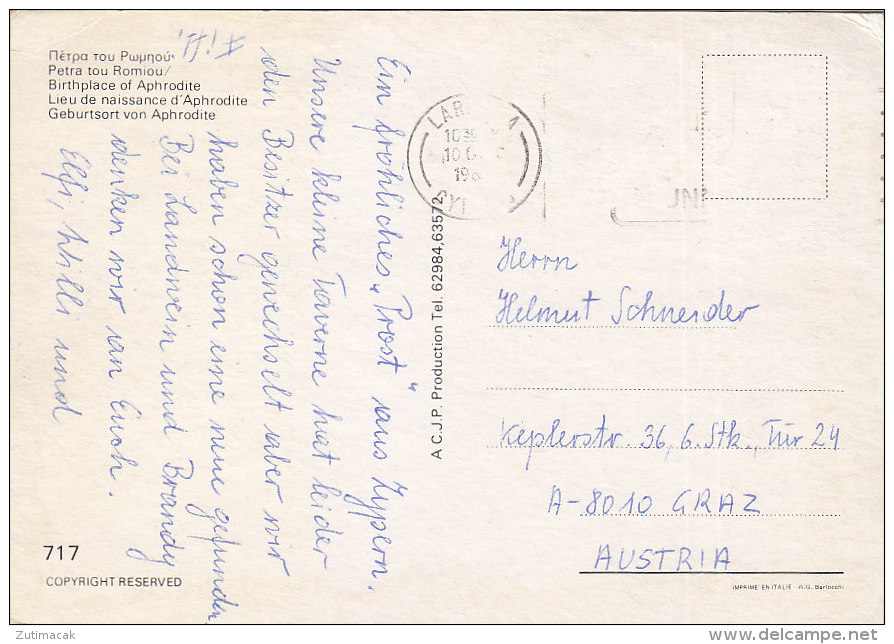 Πέτρα του Ρωμηού
Petra tou Romiou/
Birthplace of Aphrodite
Lieu de naissance d'Aphrodite
Geburtsort von Aphrodite
Ein fröhliches „Prost" aus Zypern.
Unsere kleine Taverne hat leider
den Besitzer gewechselt aber wir
haben schon eine neue gefunden
Bei Landwein und Brandy
denken wir an Euch.
Elfi, Willi und
A C.J.P. Production Tel. 62984,63572
10
198
Herrn
Helmut Schneider
Keplerstr. 36, 6. Stk., Tür 24
A-8010 GRAZ
AUSTRIA
717
COPYRIGHT RESERVED
IMPRIMÉ EN ITALIE A.G. Barlocchi
Zutimacak
http://www.delcampe.net